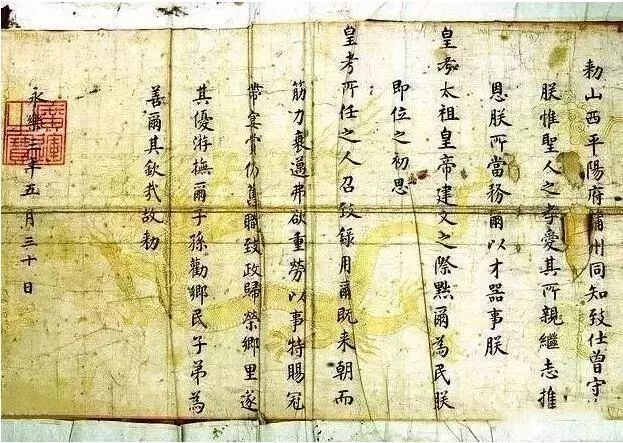 勑山西平陽府蒲州同知致仕曾守
朕惟聖人之孝愛其所親繼志推
恩朕所當務爾以才器事朕
皇考太祖皇帝建文之際黙爾為民朕
即位之初思
皇考所任之人召致錄用爾既来朝而
筋力衰邁弗欲重勞以事特賜冠
帶宴賞仍舊職致政歸榮鄉里遂
其優游撫爾子孫勸鄉民子弟為
善爾其欽哉故勑
永樂三年五月三十日